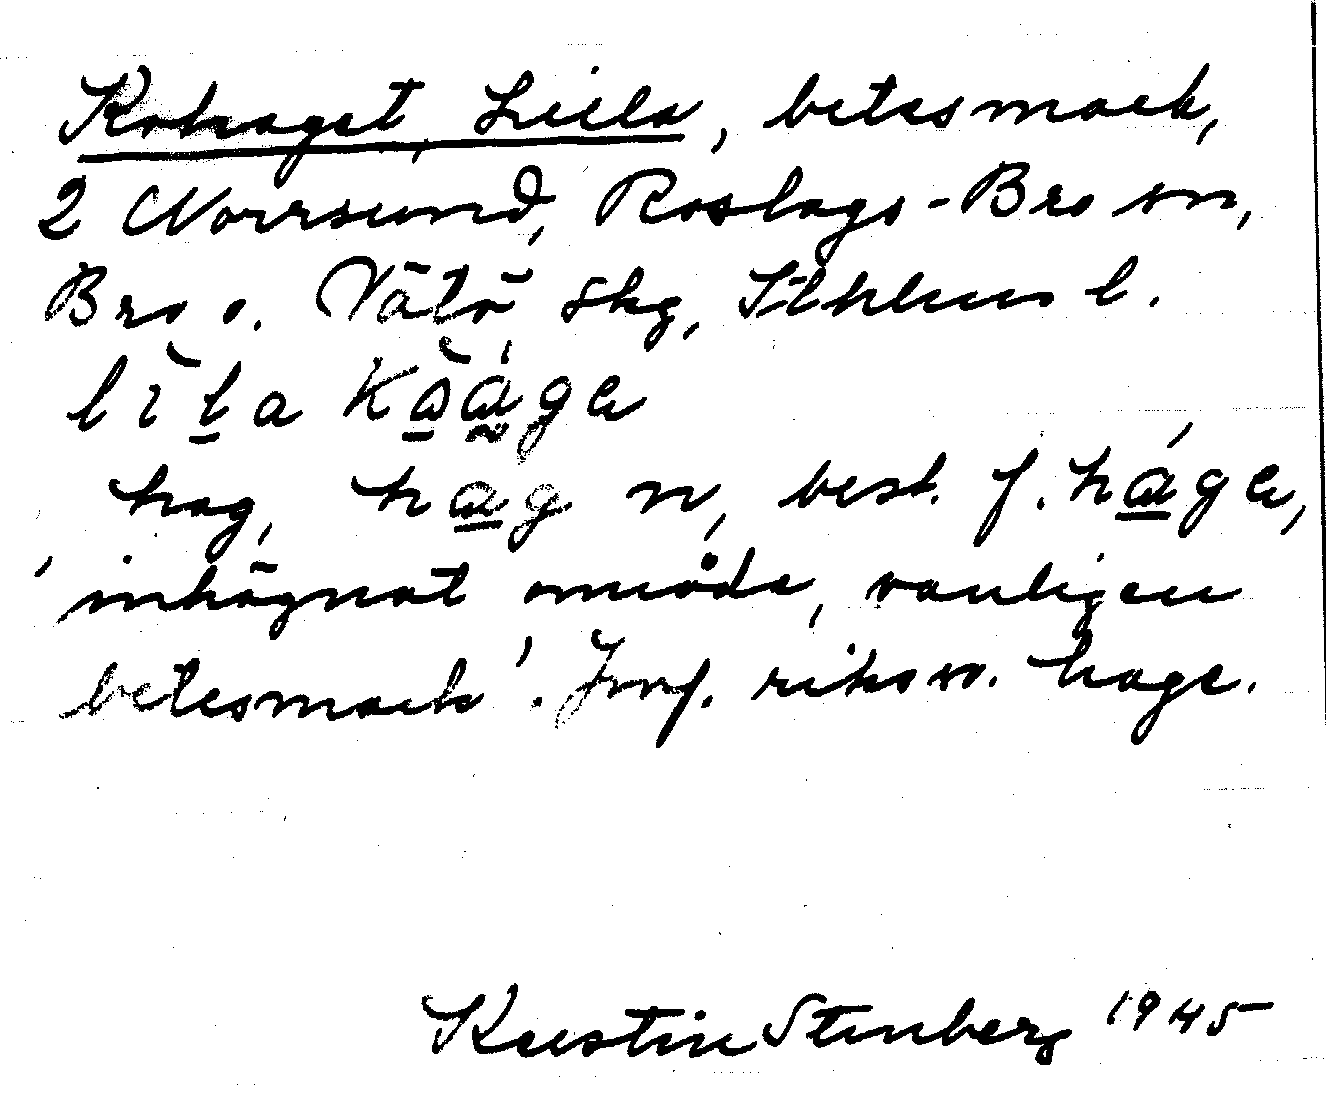 Kohaget, Lilla, betesmark,
2 Norrsund, Roslags-Bro sn,
Bro o. Vätö skg, Sthlms l.
hag, hag n, best. f. háge,
'inhägnat område, vanligen
betesmark'. Jmf. riksv. hage.
Kerstin Stenberg 1945